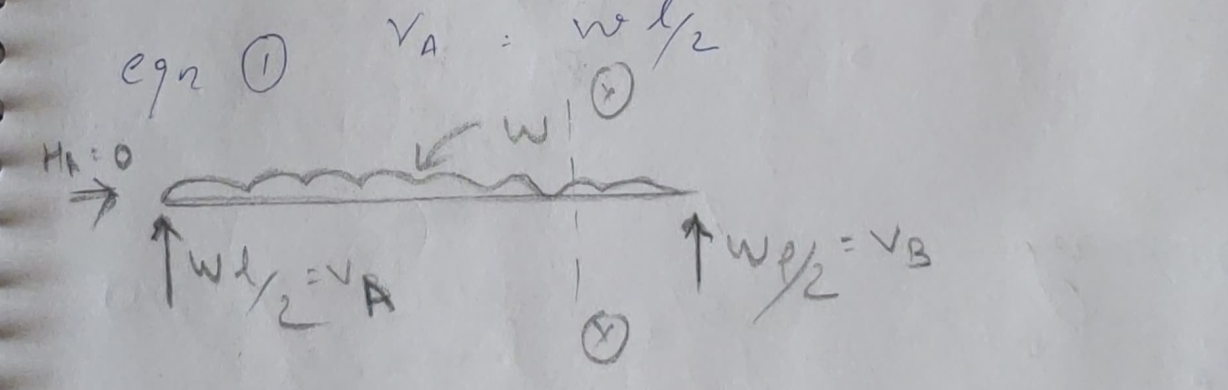 eqn ① V_A = w l/2
ⓧ
H_A = 0 w
w l/2 = V_A w l/2 = V_B
ⓧ